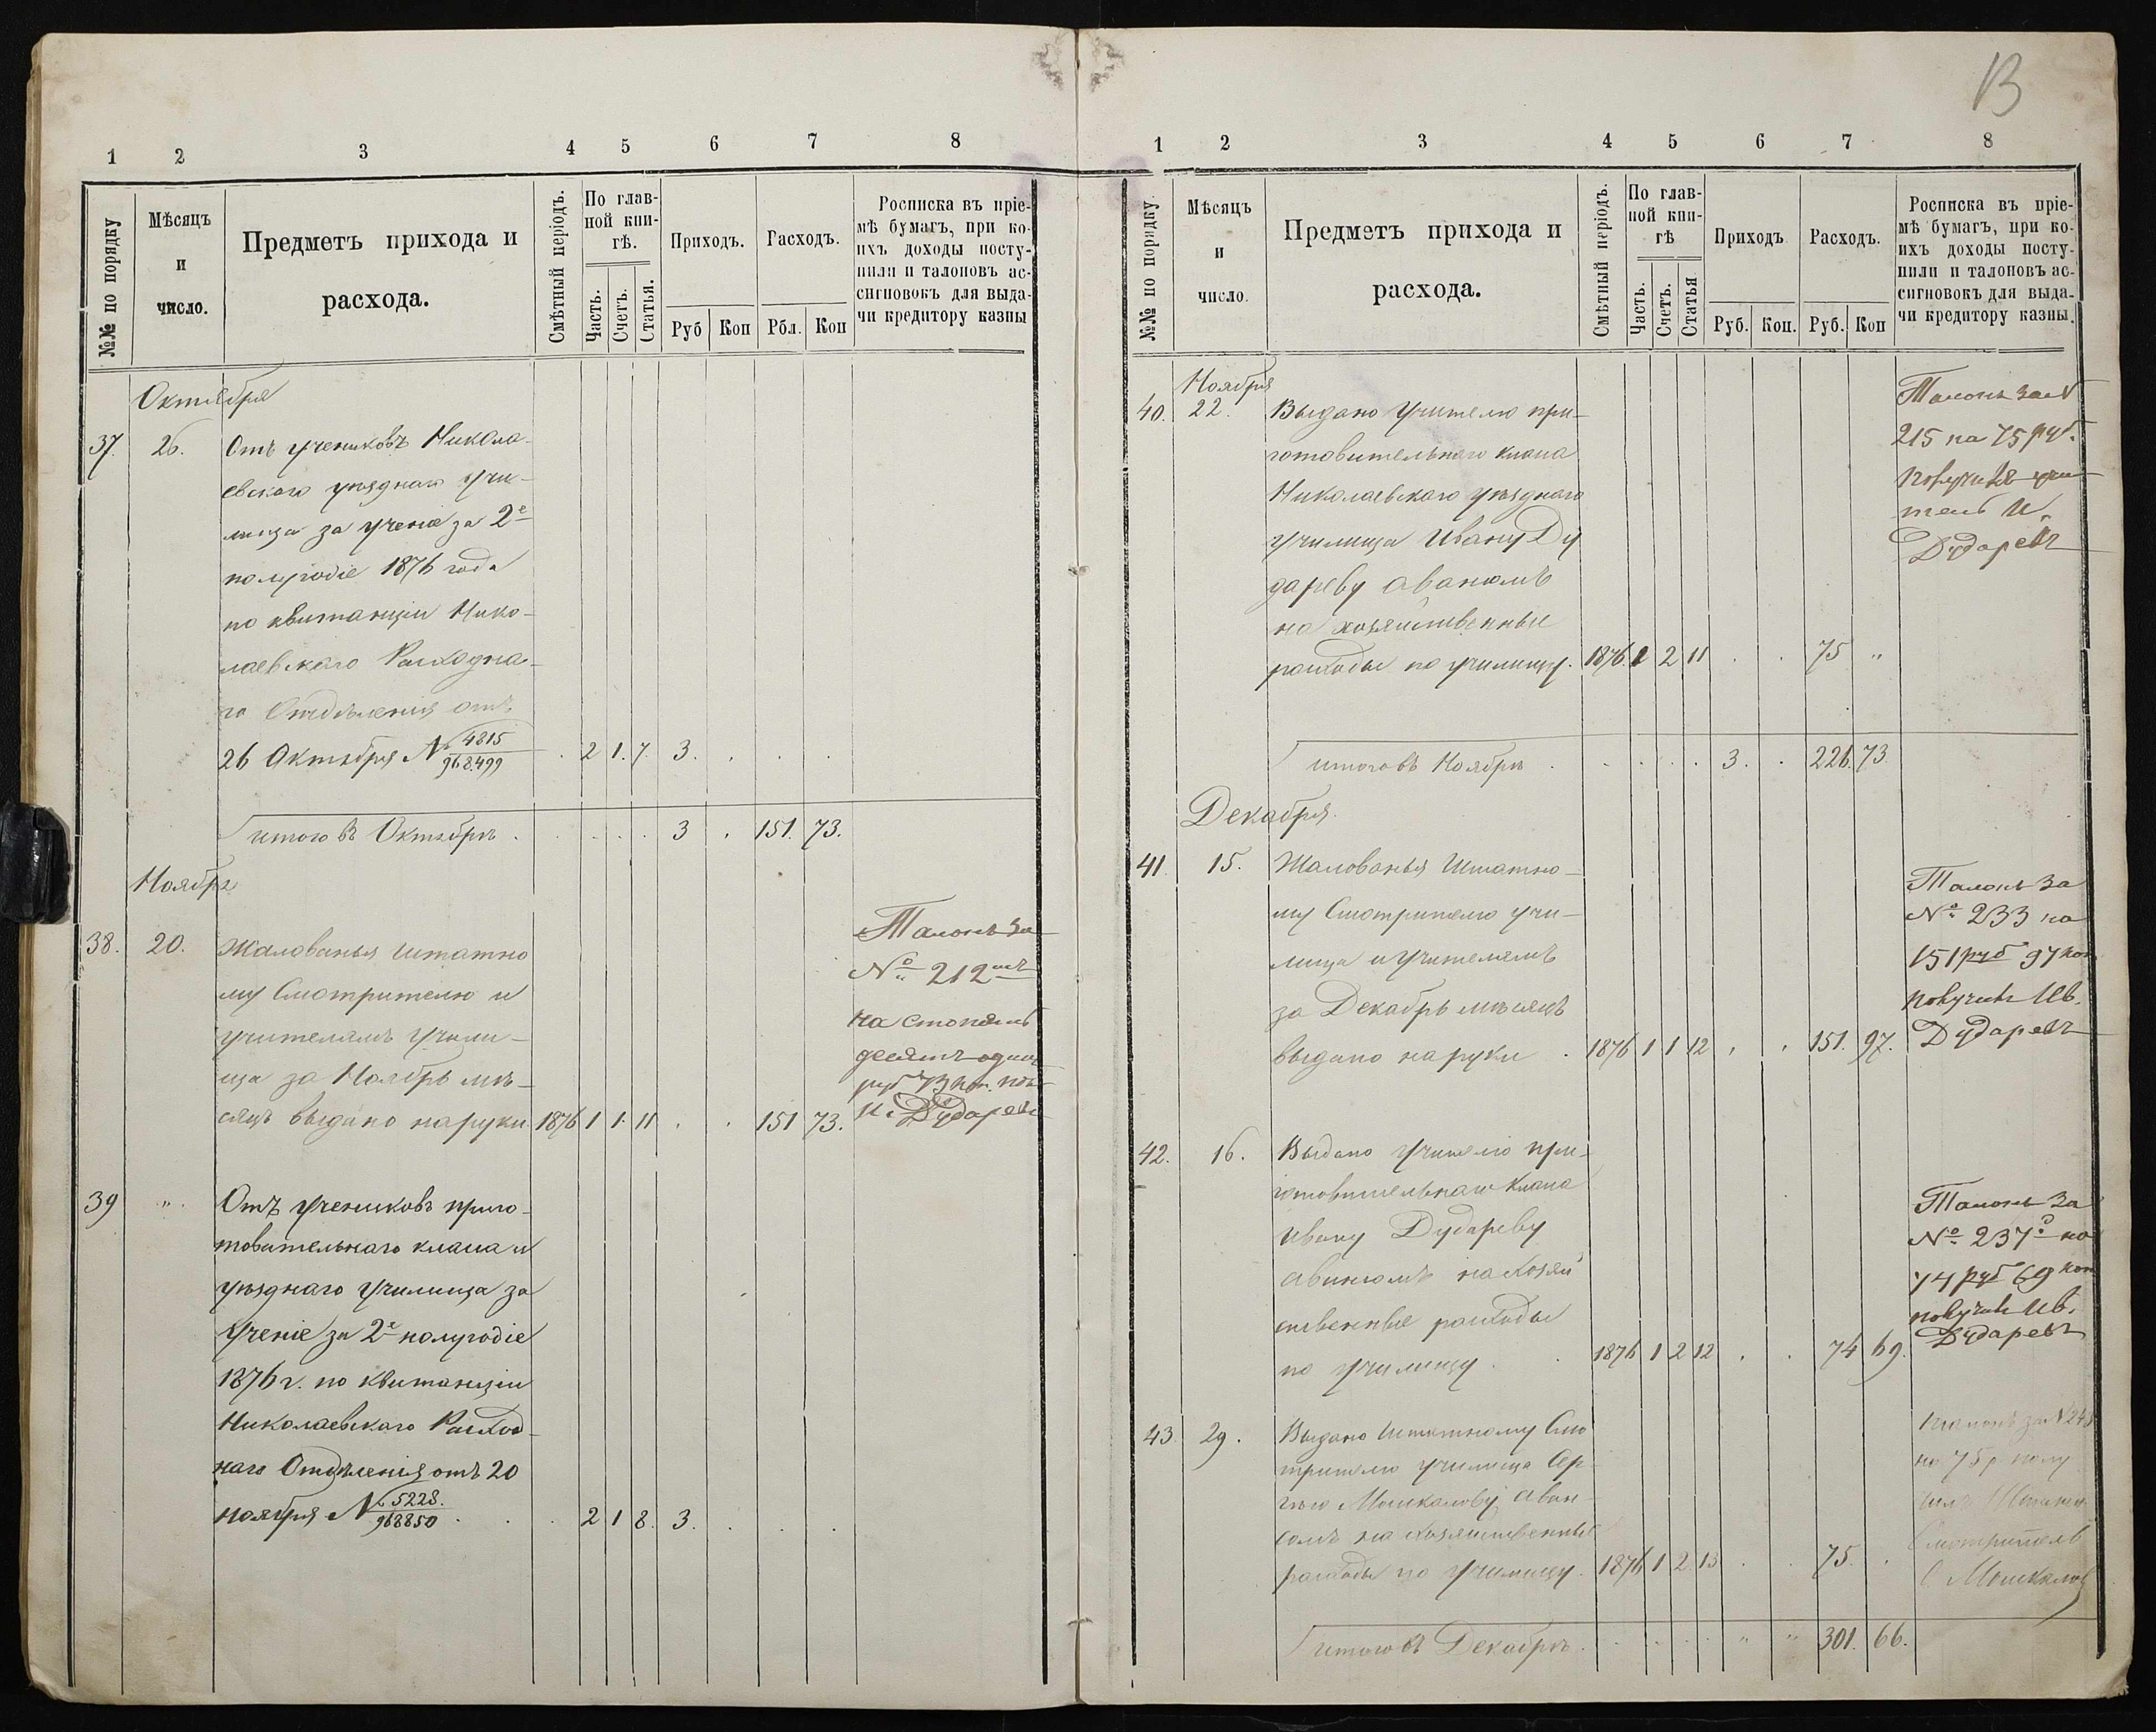 1 2 3 4 5 6 7 8
№№ по порядку
Мѣсяцъ
и
число.
Предметъ прихода и
расхода.
Смѣтный періодъ.
По глав-
ной кни-
гѣ.
Часть. Счетъ. Статья.
Приходъ. Расходъ.
Руб Коп Рбл. Коп
Росписка въ пріе-
мѣ бумагъ, при ко-
ихъ доходы посту-
пили и талоновъ ас-
сигновокъ для выда-
чи кредитору казны
Октября
37. 26. Отъ учениковъ Никола-
евскаго уѣзднаго учи-
лища за ученіе за 2е
полугодіе 1876 года
по квитанціи Нико-
лаевскаго Расходна-
го Отдѣленія отъ
26 Октября № 4815/968499 . 2 1. 7. 3. . . .
итого въ Октябрѣ . . . . . 3 . 151. 73.
Ноября
38. 20. Жалованья штатно
му Смотрителю и
учителямъ учили-
ща за Ноябрь мѣ-
сяцъ выдано на руки 1876 1 1. 11 . . 151 73.
Талонъ за
№ 212
на сто пять
десятъ одинъ
руб 73 коп. пол
И. Дударевъ
39 " . Отъ учениковъ приго-
товительнаго класса и
уѣзднаго училища за
ученіе за 2е полугодіе
1876 г. по квитанціи
Николаевскаго Расход-
наго Отдѣленія отъ 20
ноября № 5228./968850 . . . 2 1 8. 3. . . .
13
1 2 3 4 5 6 7 8
№№ по порядку.
Мѣсяцъ
и
число.
Предметъ прихода и
расхода.
Смѣтный періодъ.
По глав-
ной кни-
гѣ
Часть. Счетъ. Статья
Приходъ Расходъ.
Руб. Коп. Руб. Коп
Росписка въ пріе-
мѣ бумагъ, при ко-
ихъ доходы посту-
пили и талоновъ ас-
сигновокъ для выда-
чи кредитору казны.
Ноября
40. 22. Выдано Учителю при-
готовительнаго класса
Николаевскаго уѣзднаго
училища Ивану Ду
дареву авансомъ
на хозяйственные
расходы по училищу. 1876. 1 2 11 . . 75 "
Талонъ за №
215 на 75 руб.
получилъ учи
тель И.
Дударевъ
итого въ Ноябрѣ . . . . . . 3. . 226. 73
Декабря.
41. 15. Жалованья Штатно-
му Смотрителю учи-
лища и учителямъ
за Декабрь мѣсяцъ
выдано на руки . 1876 1 1 12 . . 151. 97.
Талонъ за
№ 233 на
151 руб 97 коп
получилъ Ив.
Дударевъ
42. 16. Выдано учителю при-
готовительнаго класса
Ивану Дудареву
авансомъ на хозяй
ственные расходы
по училищу . . 1876 1 2 12 . . 74 69.
Талонъ за
№ 237 на
74 руб 69 коп
получилъ Ив.
Дударевъ
43. 29. Выдано штатному Смо
трителю училища Сер-
гѣю Мошкалову аван-
сомъ на хозяйственные
расходы по училищу. 1876 1 2 13 . . 75. .
талонъ за № 248
на 75 р. полу
чилъ Штатн.
Смотритель
С Мошкаловъ
итого въ Декабрѣ . . . . . " " 301. 66.